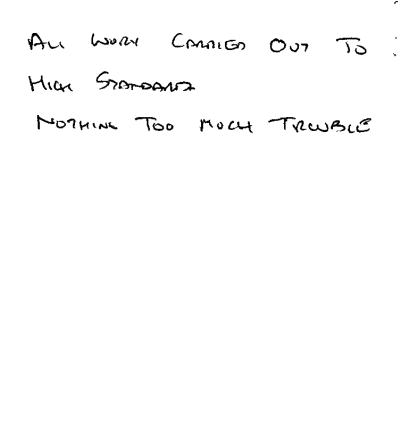 ALL WORK CARRIED OUT TO
HIGH STANDARD
NOTHING TOO MUCH TROUBLE